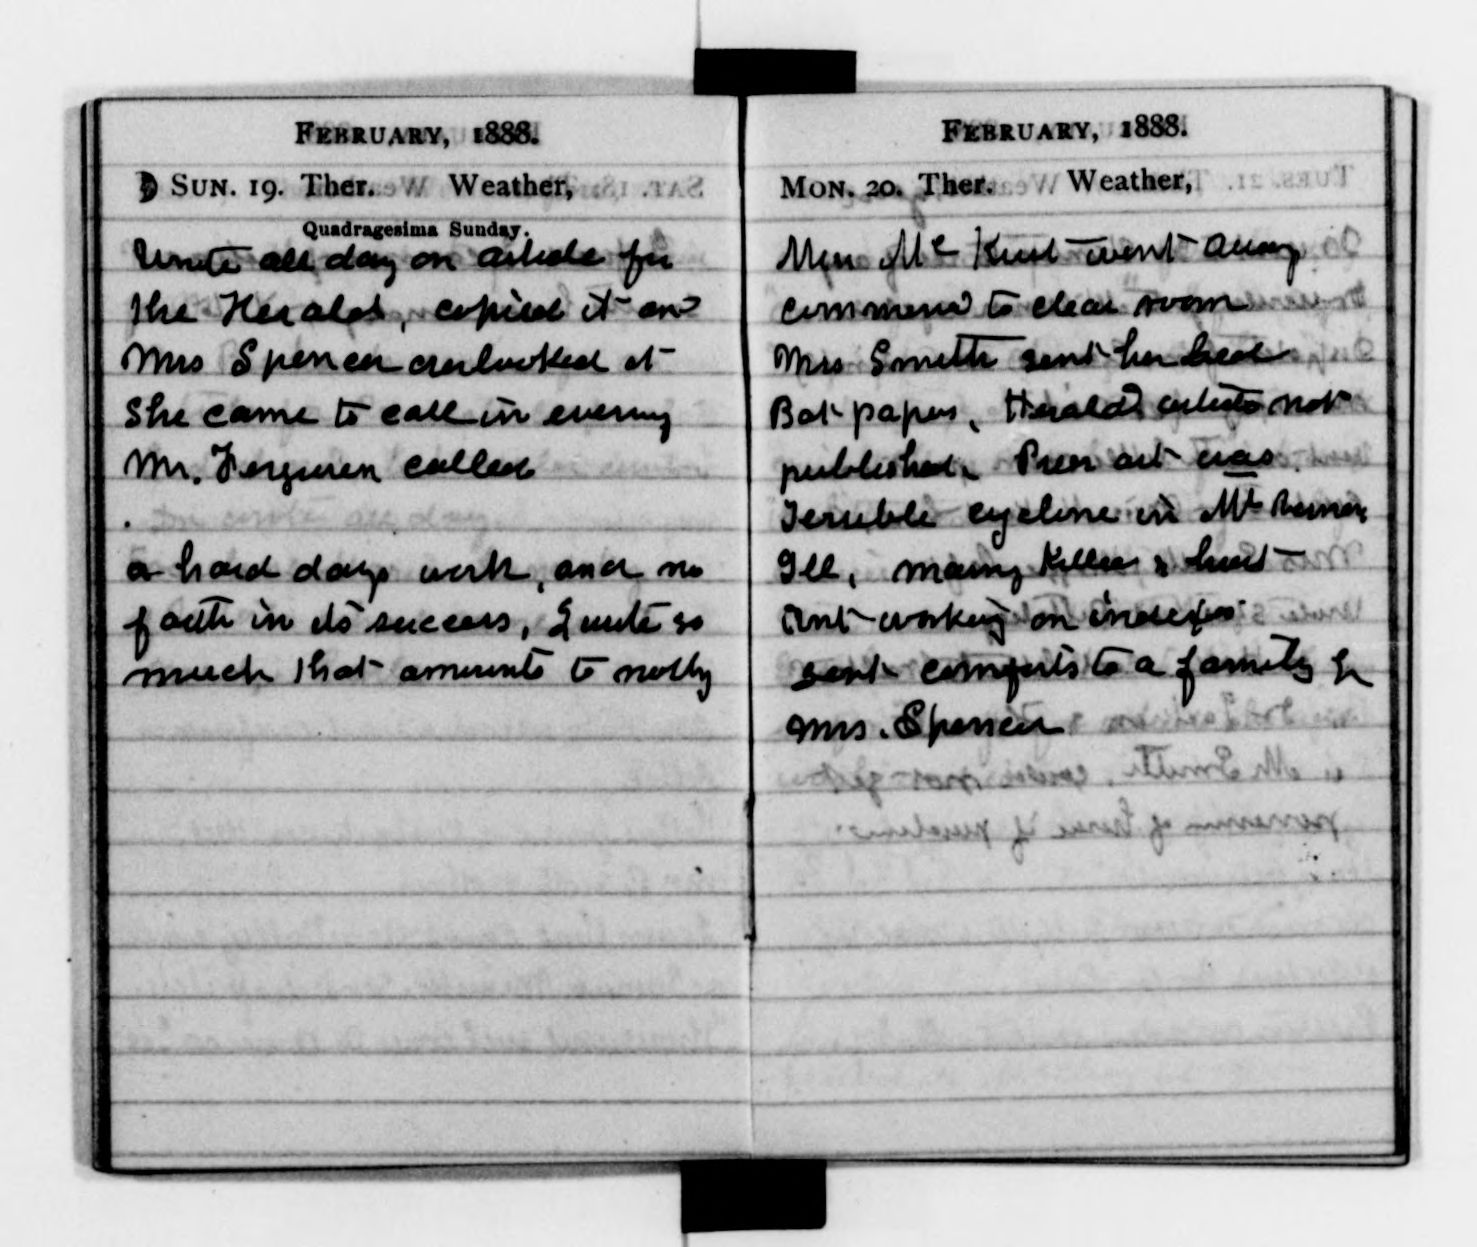 FEBRUARY, 1888.
SUN. 19. Ther. Weather,
Quadragesima Sunday.
Wrote all day on article for
the Herald, copied it and
Mrs Spencer overlooked it
She came to call in evening
Mr. Ferguson called
a hard days work, and no
faith in its success, I write so
much that amounts to nothg
FEBRUARY, 1888.
MON. 20. Ther. Weather,
Miss Mc went away
commened to clear room
Mrs Smith sent her bed
Bot papers, Herald article not
published. Prier art was
Terrible cyclone in Mt Vernon,
Ill, many killed & hurt
Ant working on indexes
sent comforts to a family by
Mrs. Spencer